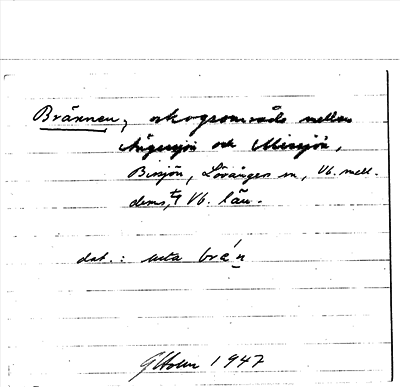 Brännen, skogsområde mellan
Ängessjön och Missjön,
Bissjön, Lövångers sn, Vb. mell.
dims, Vb. län.
dat.: uta brán
G Holm 1947